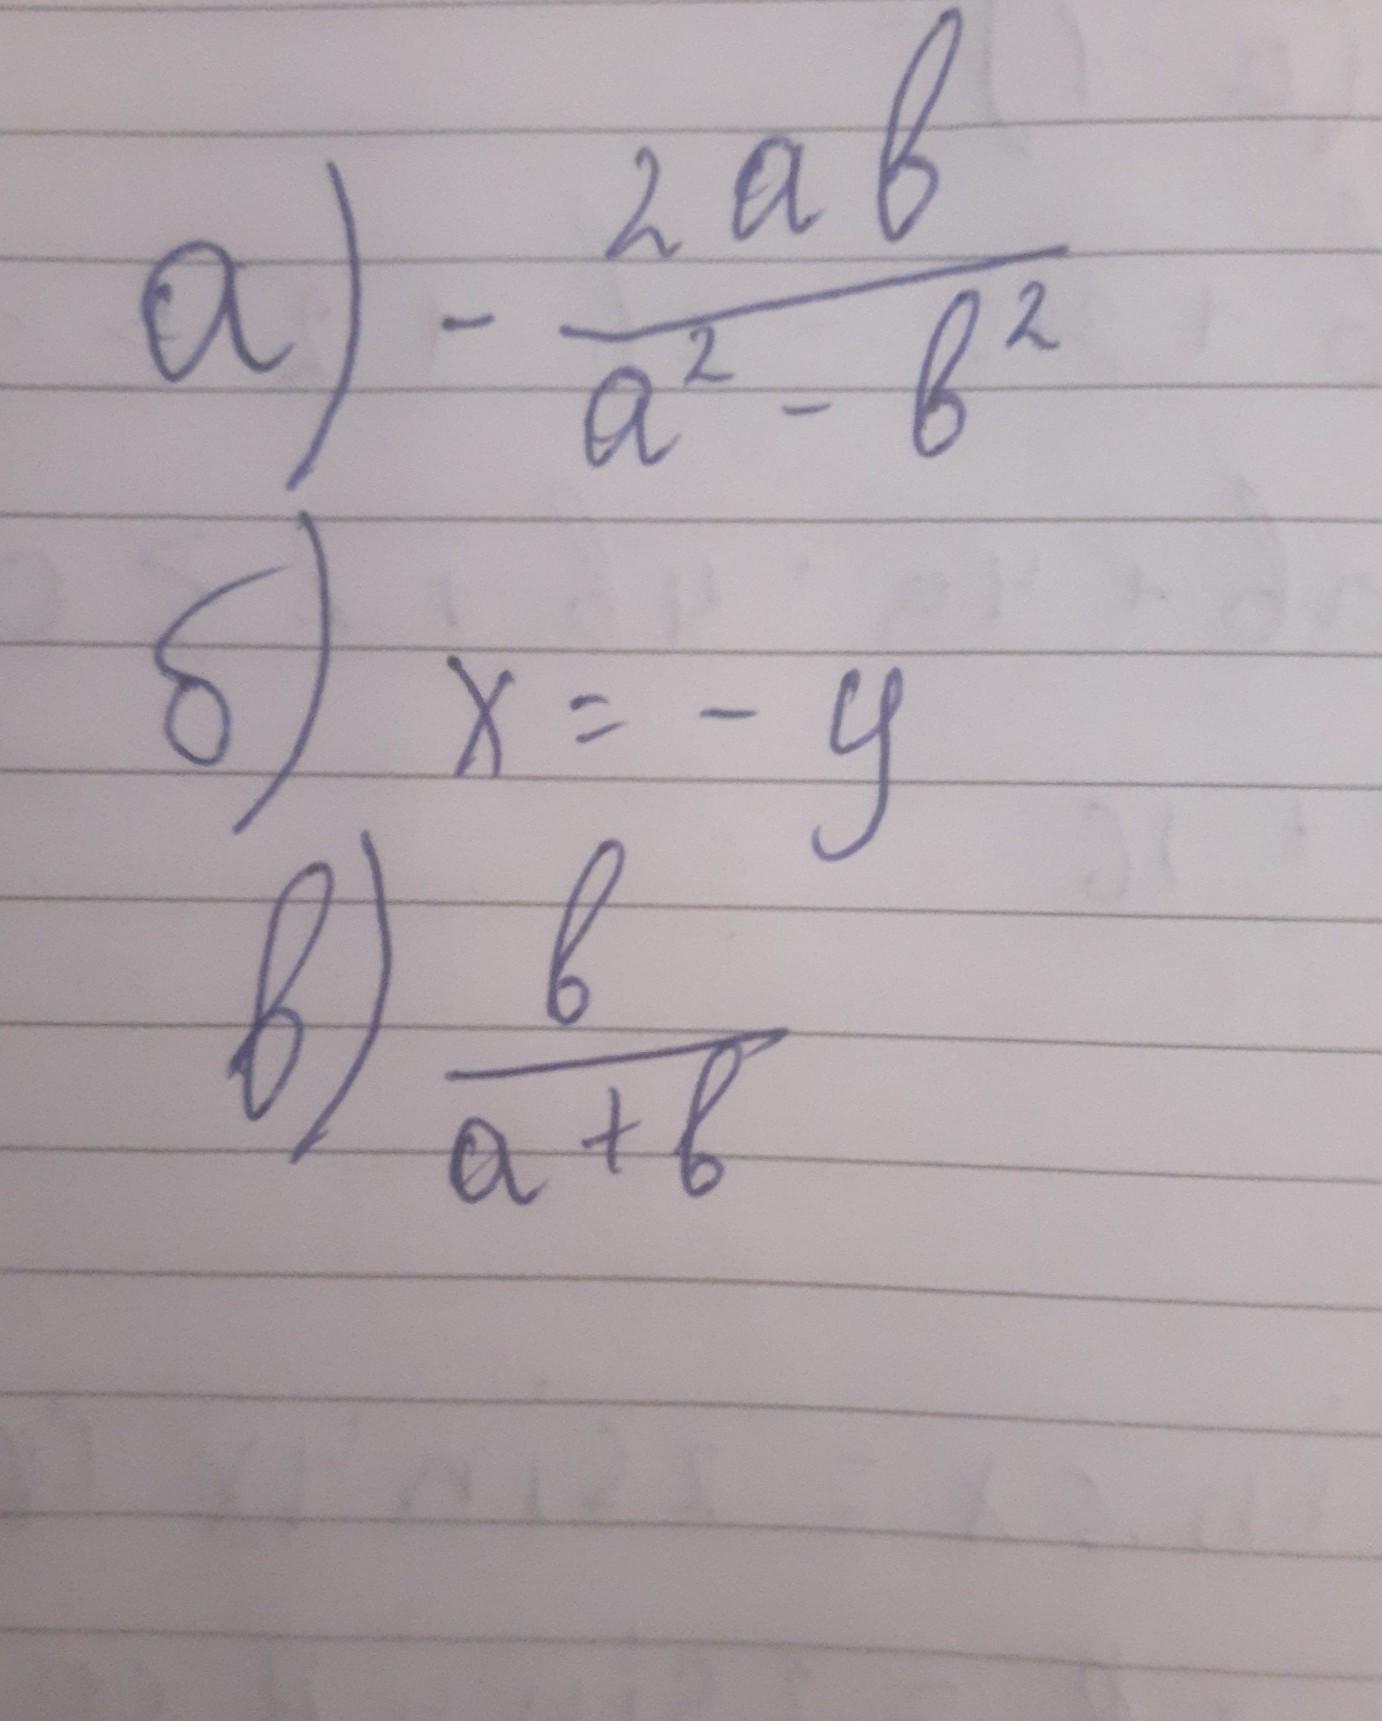 а) - 2ab / a² - b²
б) x = - y
в) b / a + b